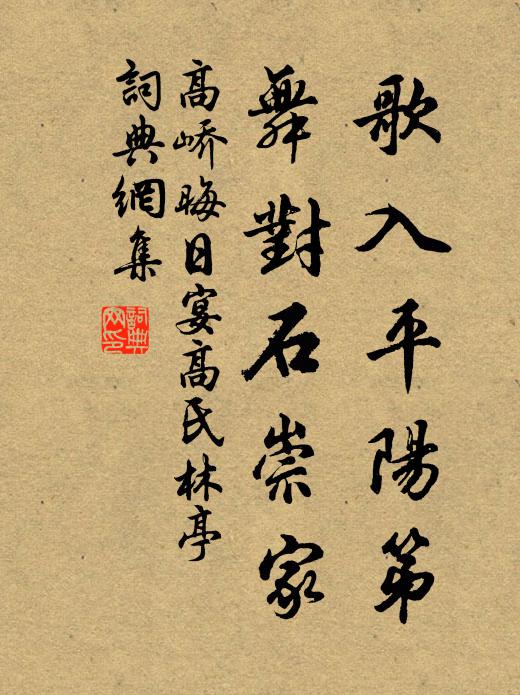 歌入平陽第
舞對石崇家
高嶠晦日宴高氏林亭
詞典網集
詞典网印